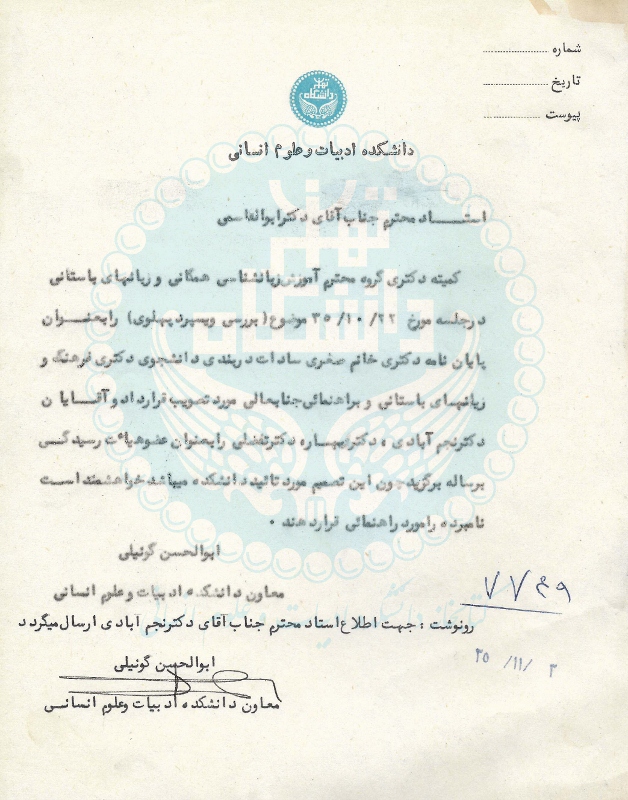 شماره
تاریخ
پیوست
دانشگاه تهران
دانشکده ادبیات و علوم انسانی
استاد محترم جناب آقای دکتر ابوالقاسمی
کمیته دکتری گروه محترم آموزش زبانشناسی همگانی و زبانهای باستانی
در جلسه مورخ ۲۲/ ۱۰/ ۳۵ موضوع (بررسی ویسپرد پهلوی) را بعنوان
پایان نامه دکتری خانم صغری سادات دربندی دانشجوی دکتری فرهنگ و
زبانهای باستانی و براهنمائی جنابعالی مورد تصویب قرار داد و آقایان
دکتر نجم آبادی ، دکتر بهار، دکتر تفضلی را بعنوان عضو هیأت رسیدگی
برساله برگزید چون این تصمیم مورد تائید دانشکده میباشد خواهشمند است
نامبرده را مورد راهنمائی قرار دهند .
ابوالحسن گوئیلی
معاون دانشکده ادبیات و علوم انسانی
۷۷۴۹
رونوشت : جهت اطلاع استاد محترم جناب آقای دکتر نجم آبادی ارسال میگردد
۳ /۱۱/ ۳۵
ابوالحسن گوئیلی
معاون دانشکده ادبیات و علوم انسانی